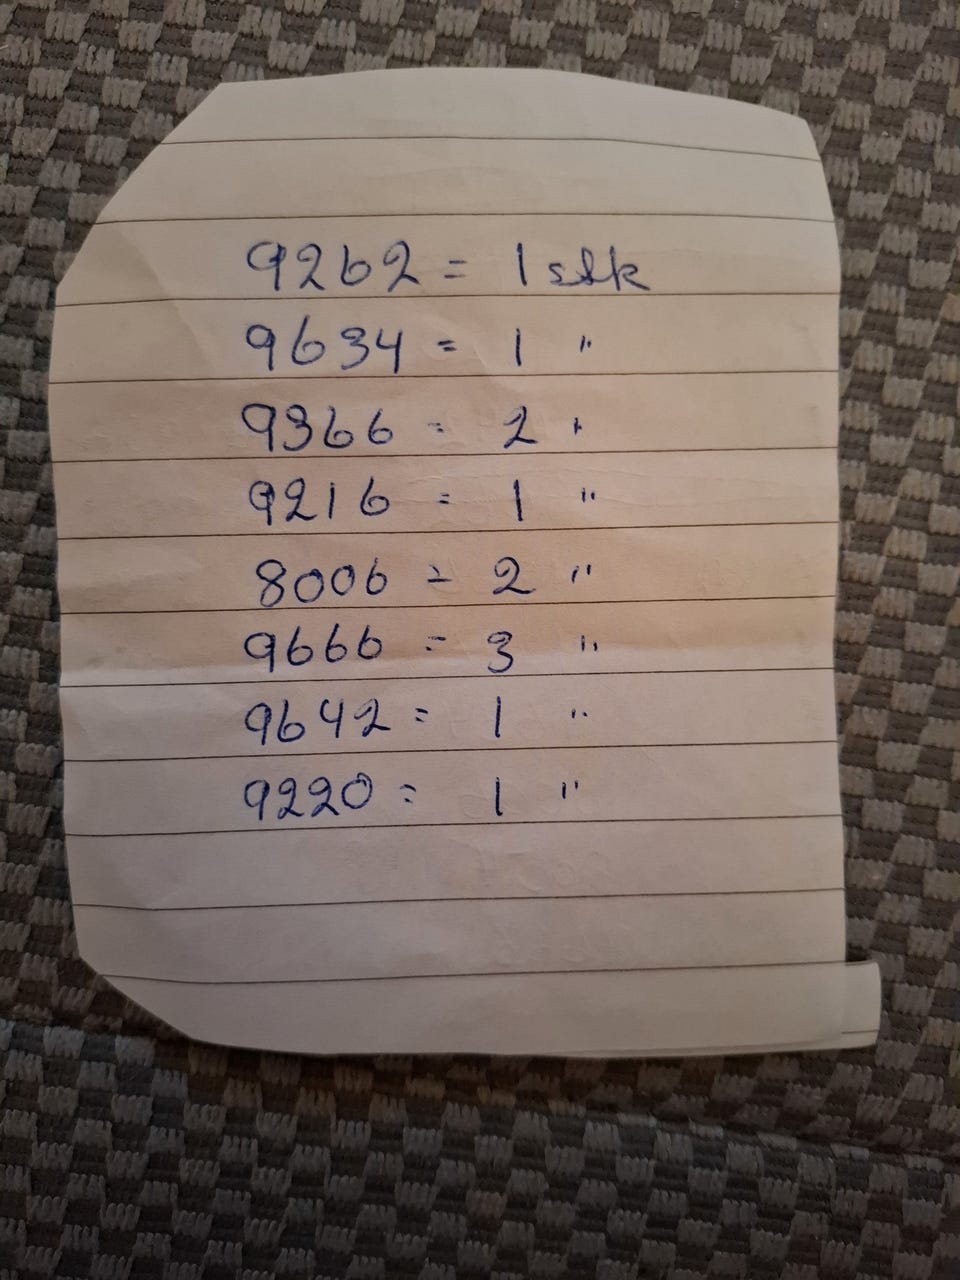 9262 = 1 stk
9634 = 1 "
9366 = 2 "
9216 = 1 "
8006 = 2 "
9666 = 3 "
9642 = 1 "
9220 = 1 "